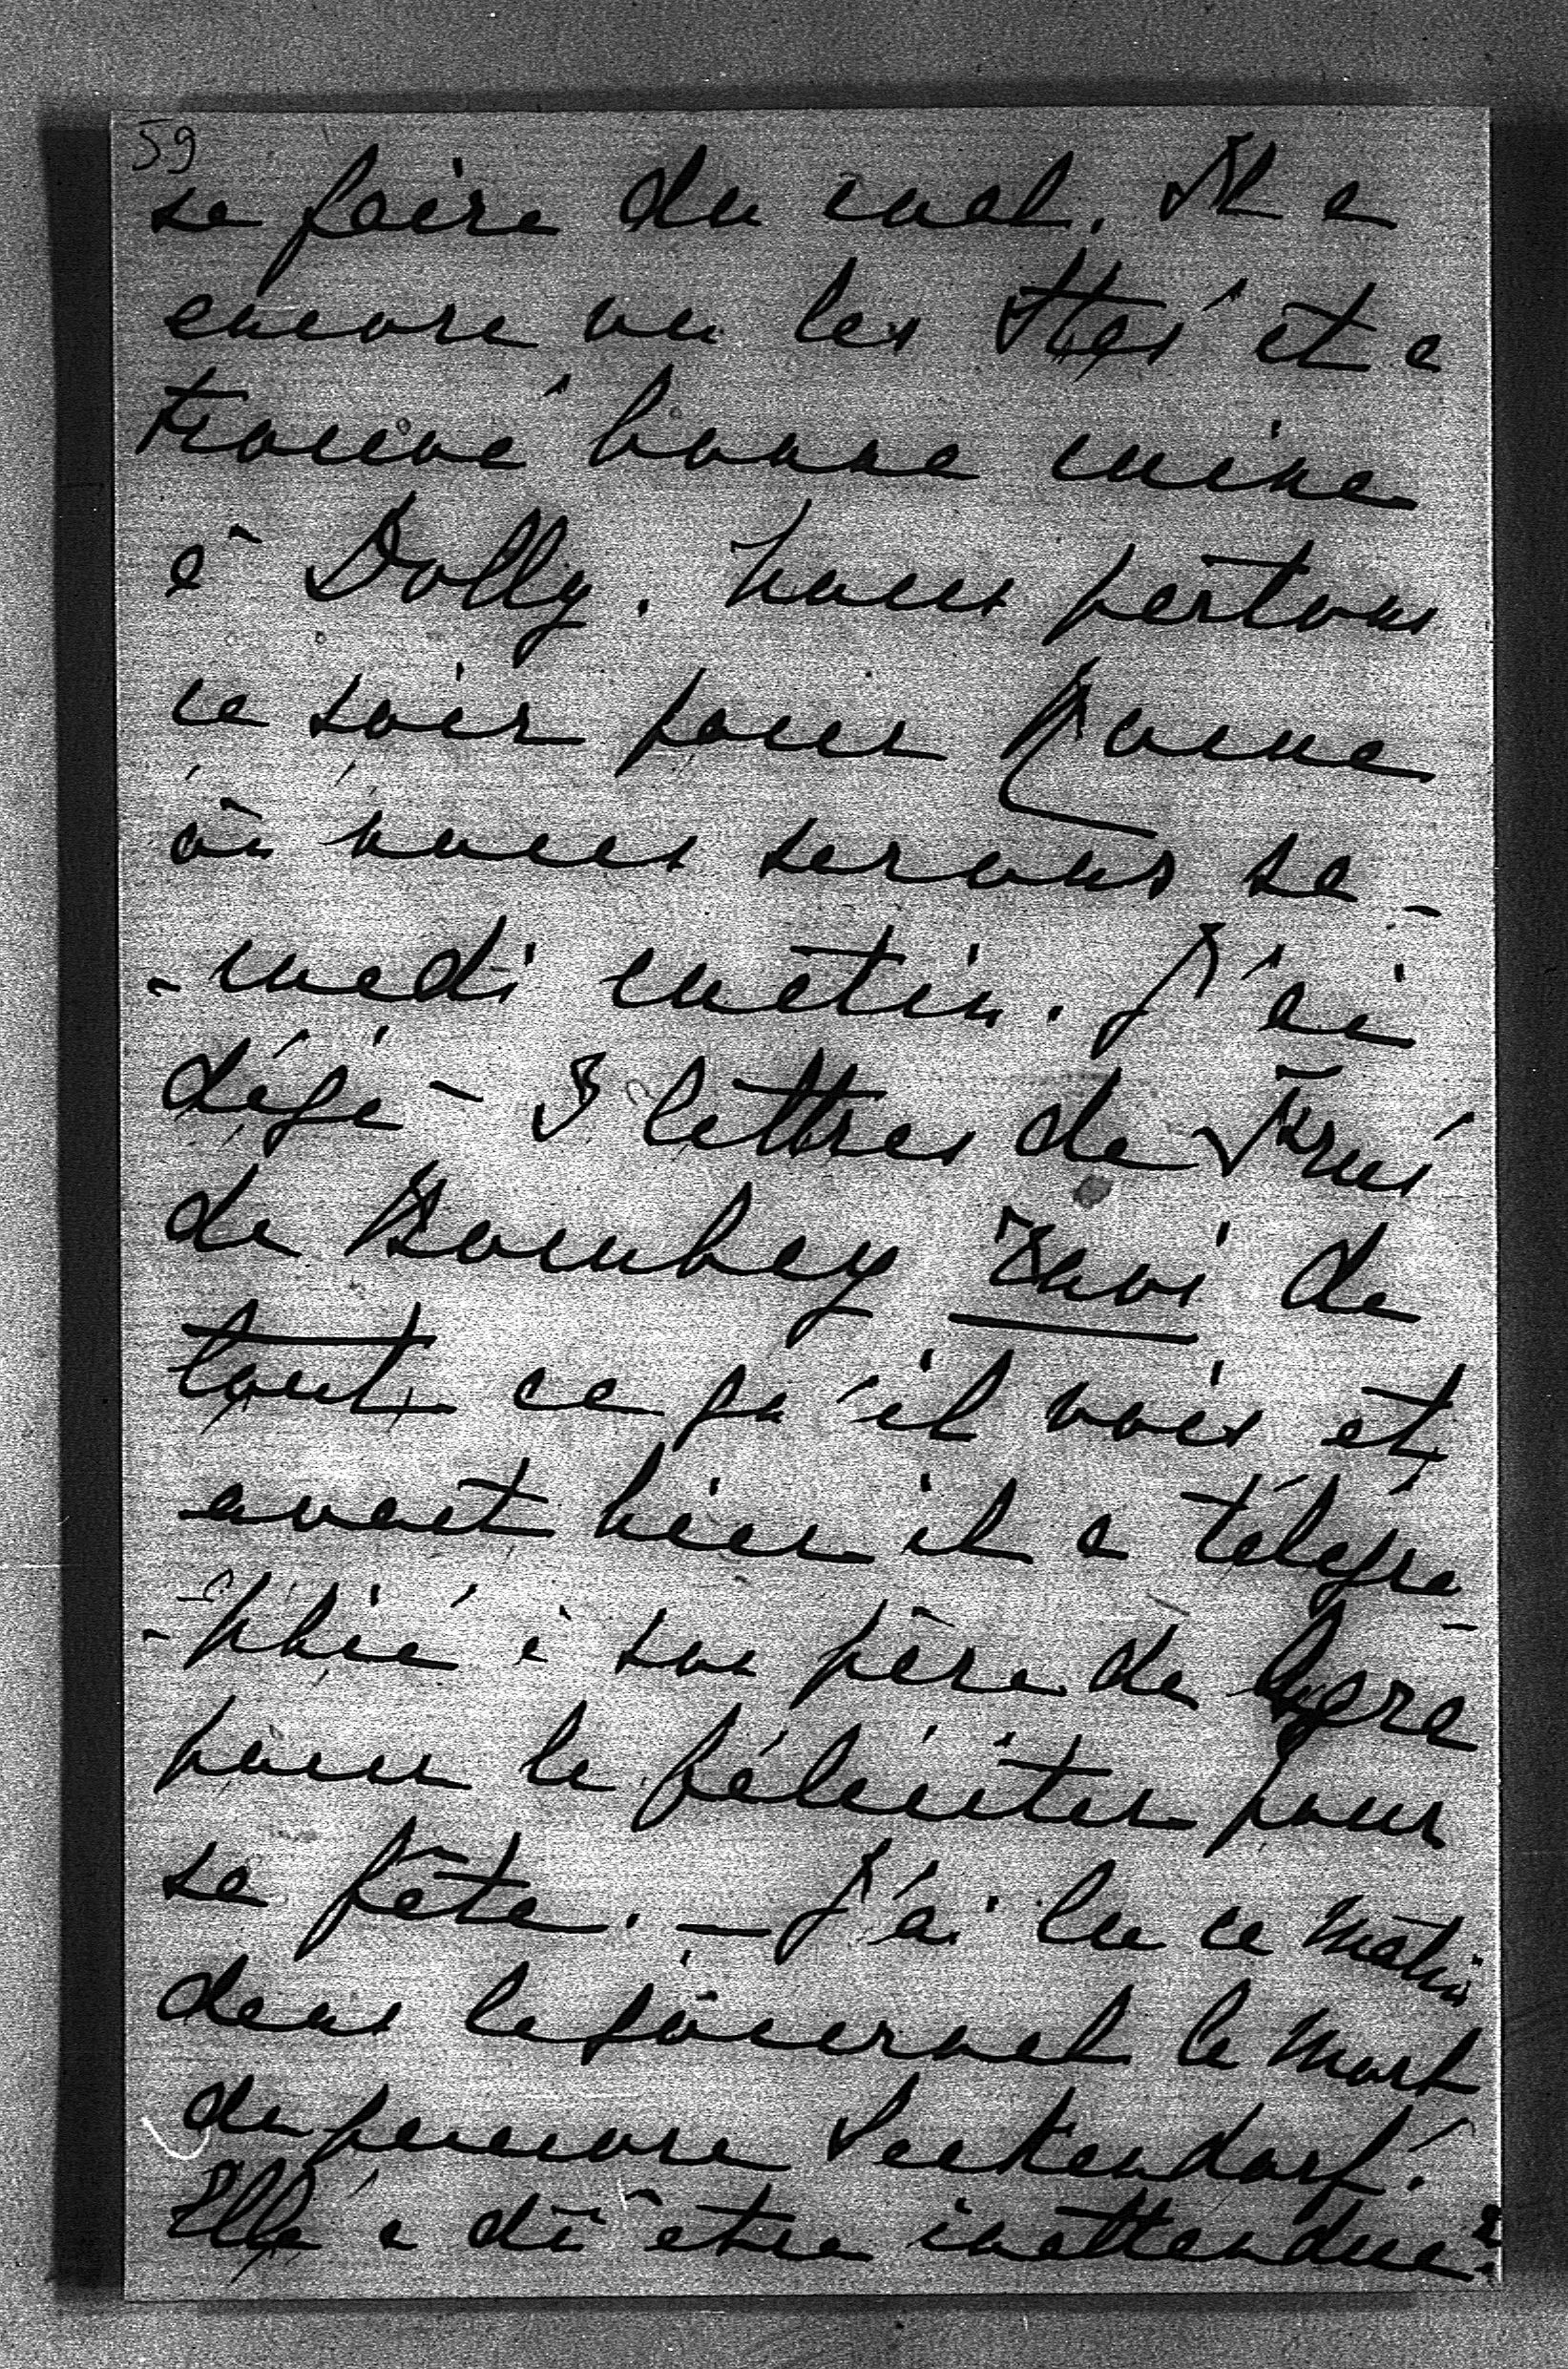 59
se faire du mal. Il a
encore vu les et a
trouvé bonne mine
à Dolly. Nous partons
ce soir pour Rome
où nous serons sa-
-medi matin. J'ai
déjà 3 lettres de
de Bombay ravi de
tout ce qu'il voit et
avant hier il a télégra-
-phié à son père de Agra
pour le féliciter pour
sa fête. — J'ai lu ce matin
dans le journal la mort
du pauvre Seckendorf.
Elle a dû être inattendue?